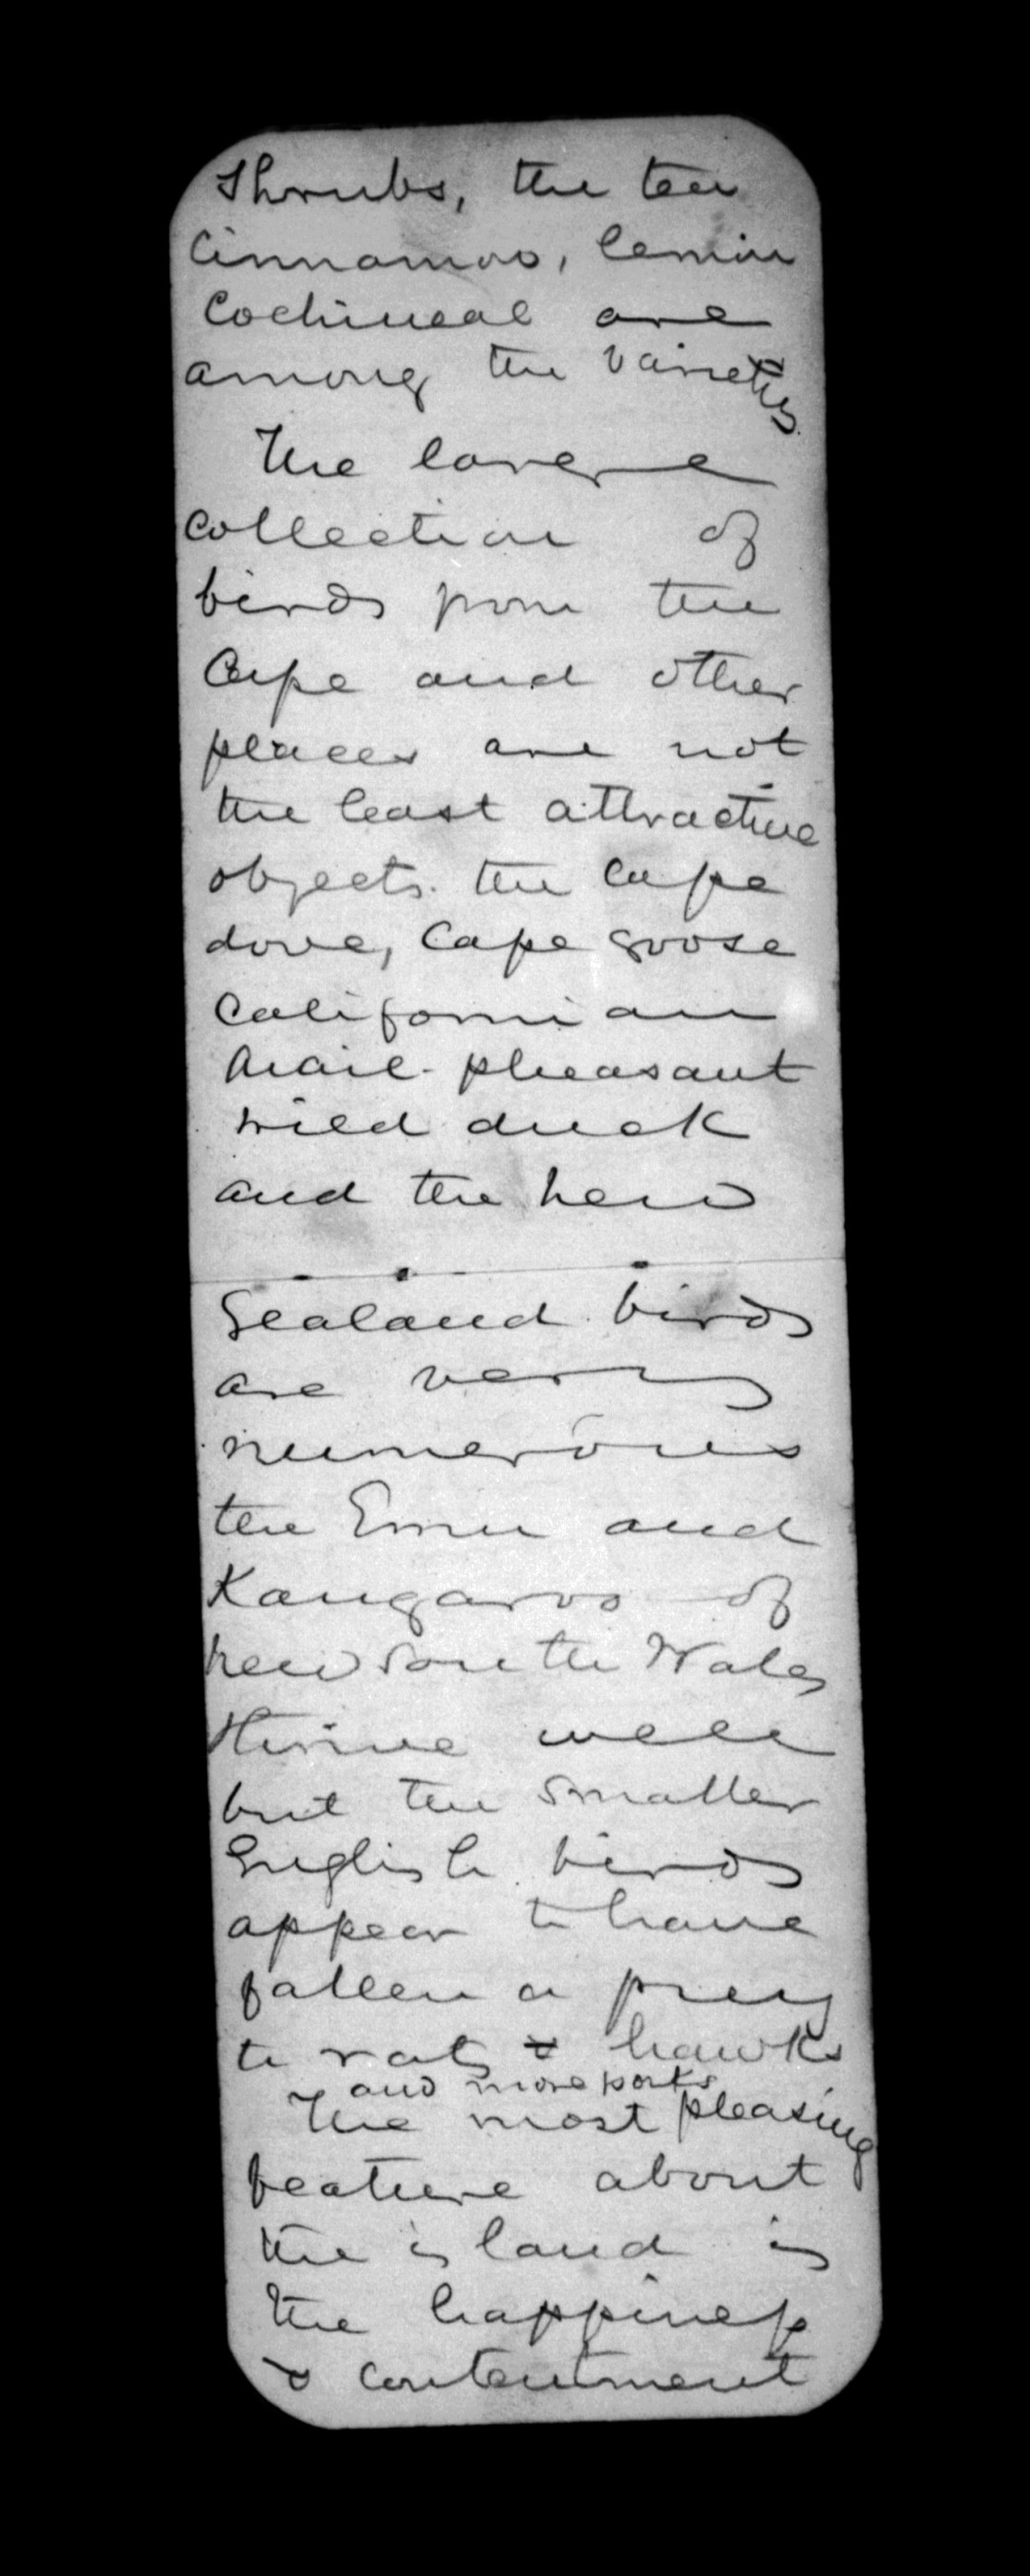 Shrubs, the tea
Cinnamon, lemon
Cochineal are
among the varieties
The large
collection of
birds from the
Cape and other
places are not
the least attractive
objects. the Cape
dove, Cape goose
Californian
Quail - pheasant
wild duck
and the New
Zealand birds
are very
numerous
the Emu and
Kangaroo of
New South Wales
thrive well
but the smaller
English birds
appear to have
fallen a prey
to rats & hawks
and moreporks
The most pleasing
feature about
the island is
the happiness
& contentment